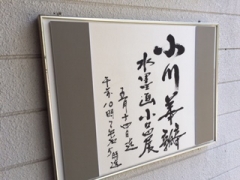 小川華瓣
水墨画小品展
五月十四日迄
午前10時〜午後5時迄